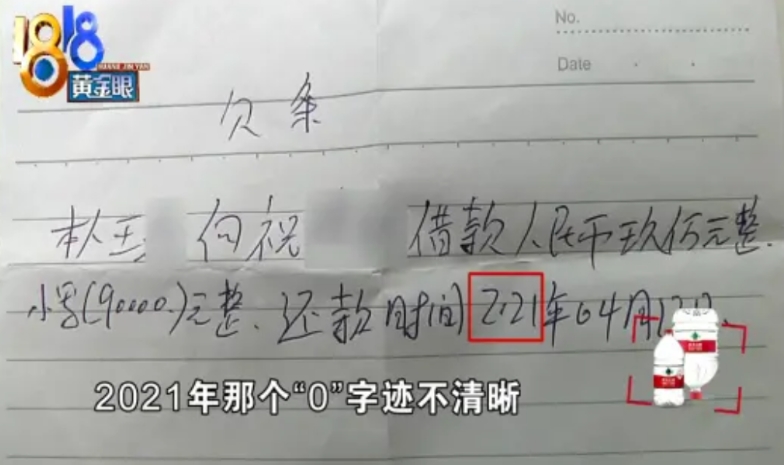 1818
HANG JIN YAN
黄金眼
No.
Date
欠条
本人王 向祝 借款人民币玖仟元整.
小写(90000.)元整、还款时间2021年04月12日.
2021年那个“0”字迹不清晰